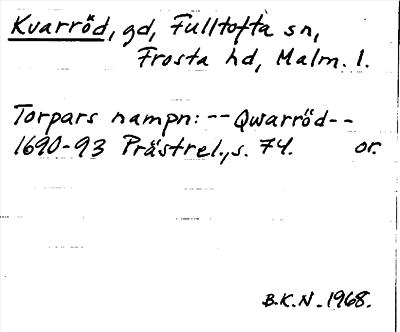 Kvarröd, gd, Fulltofta sn,
Frosta hd, Malm. l.
Torpars nampn: -- Qwarröd --
1690-93 Prästrel., s. 74. or.
B.K.N. 1968.